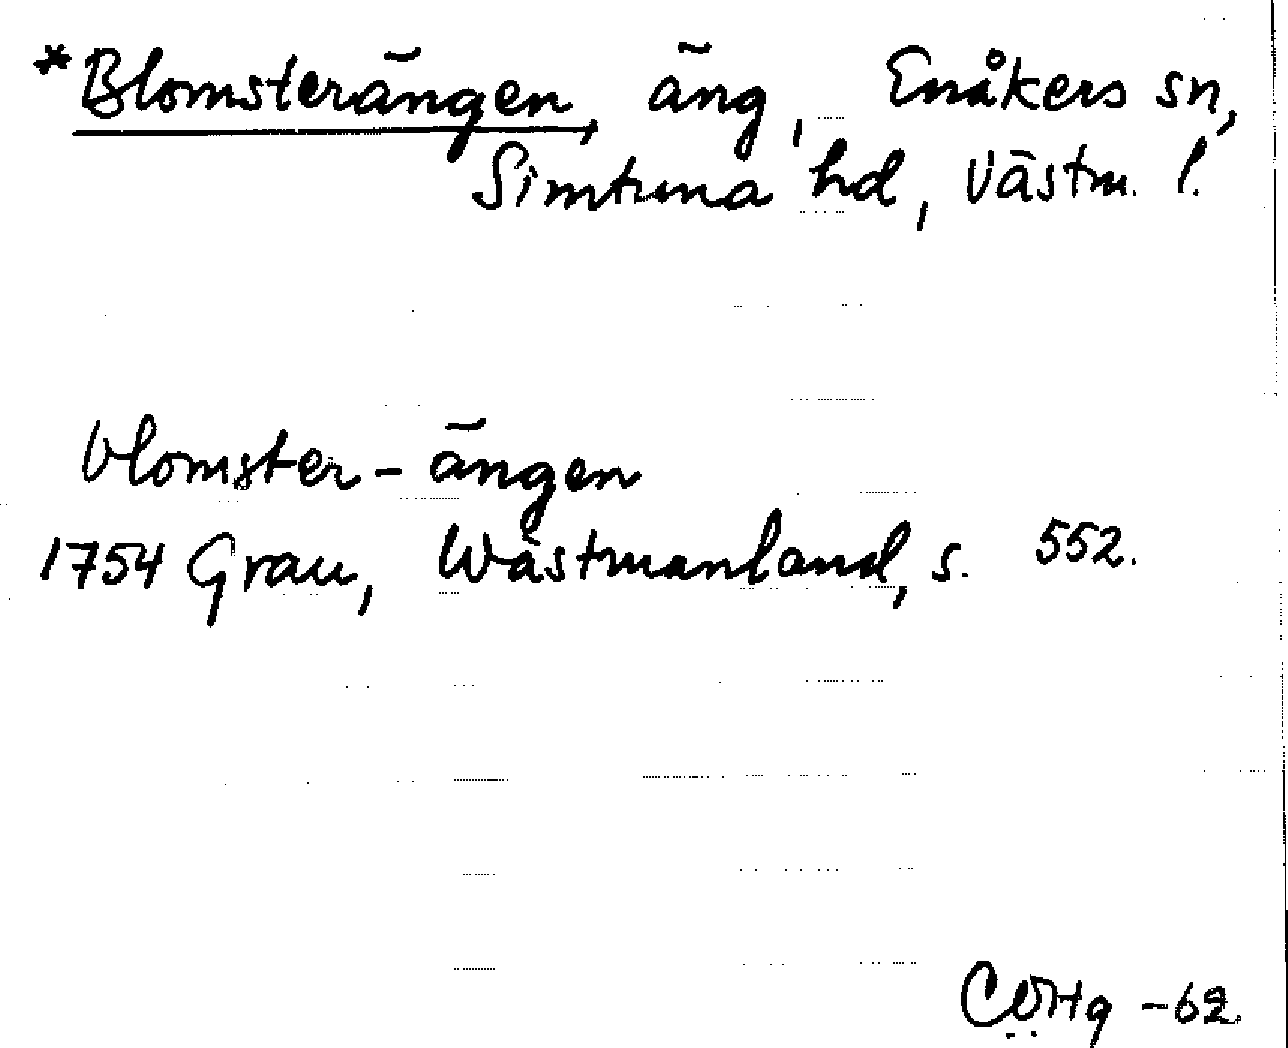 *Blomsterängen, äng, Enåkers sn,
Simtuna hd, Västm. l.
blomster-ängen
1754 Grau, Wästmanland, s. 552.
-62